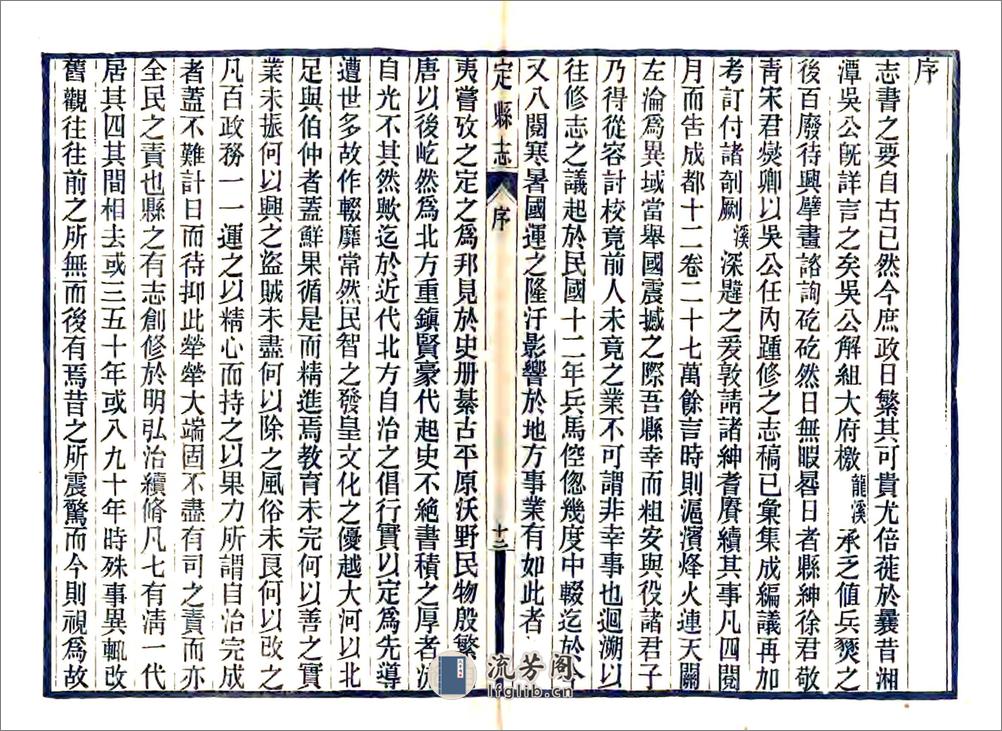 序
志書之要自古已然今庶政日繁其可貴尤倍蓰於曩昔湘
潭吳公旣詳言之矣吳公解組大府檄龍溪承乏値兵燹之
後百廢待興擘畫諮詢矻矻然日無暇晷日者縣紳徐君敬
靑宋君燮卿以吳公任內踵修之志稿已彙集成編議再加
考訂付諸剞劂溪深韙之爰敦請諸紳耆賡續其事凡四閱
月而告成都十二卷二十七萬餘言時則滬濱烽火連天關
左淪爲異域當舉國震撼之際吾縣幸而粗安與役諸君子
乃得從容計校竟前人未竟之業不可謂非幸事也迴溯以
往修志之議起於民國十二年兵馬倥傯幾度中輟迄於今
又八閱寒暑國運之隆汙影響於地方事業有如此者
定縣志
序
十二
夷嘗攷之定之爲邦見於史册綦古平原沃野民物殷繁
唐以後屹然爲北方重鎭賢豪代起史不絶書積之厚者流
自光不其然歟迄於近代北方自治之倡行實以定爲先導
遭世多故作輟靡常然民智之發皇文化之優越大河以北
足與伯仲者蓋鮮果循是而精進焉敎育未完何以善之實
業未振何以興之盜賊未盡何以除之風俗未良何以改之
凡百政務一一運之以精心而持之以果力所謂自治完成
者蓋不難計日而待抑此犖犖大端固不盡有司之責而亦
全民之責也縣之有志創修於明弘治續脩凡七有淸一代
居其四其間相去或三五十年或八九十年時殊事異輒改
舊觀往往前之所無而後有焉昔之所震驚而今則視爲故
流芳阁
lfglib.cn